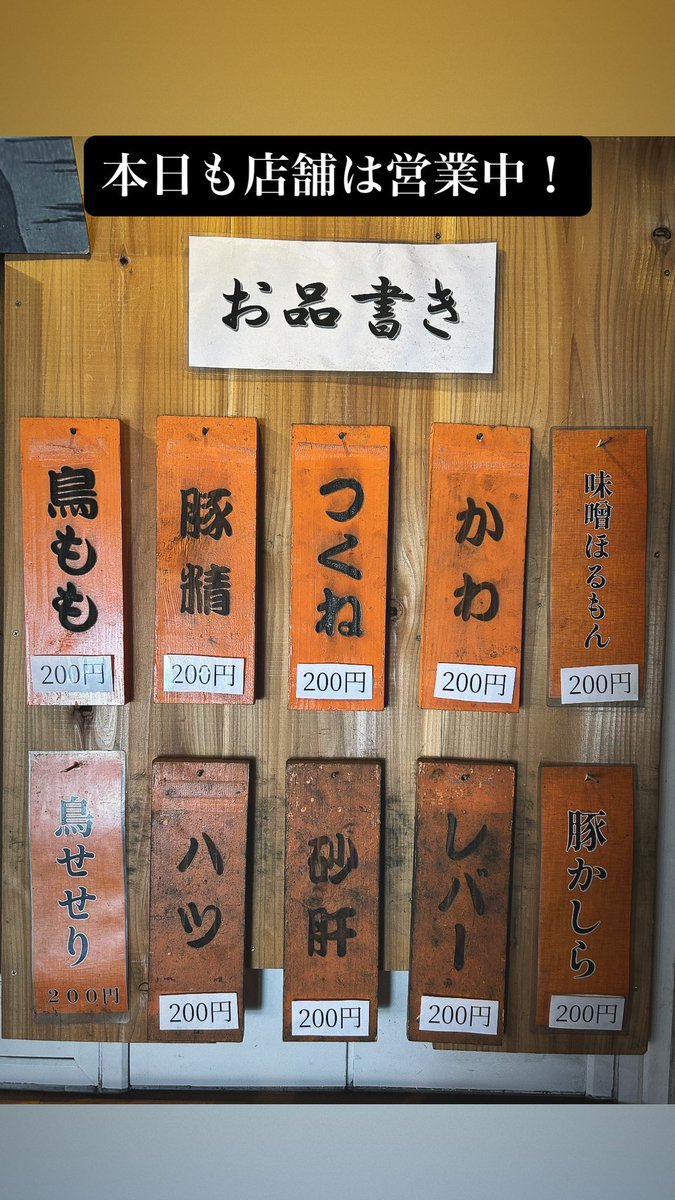 本日も店舗は営業中！
お品書き
鳥もも
200円
豚精
200円
つくね
200円
かわ
200円
味噌ほるもん
200円
鳥せせり
200円
ハツ
200円
砂肝
200円
レバー
200円
豚かしら
200円